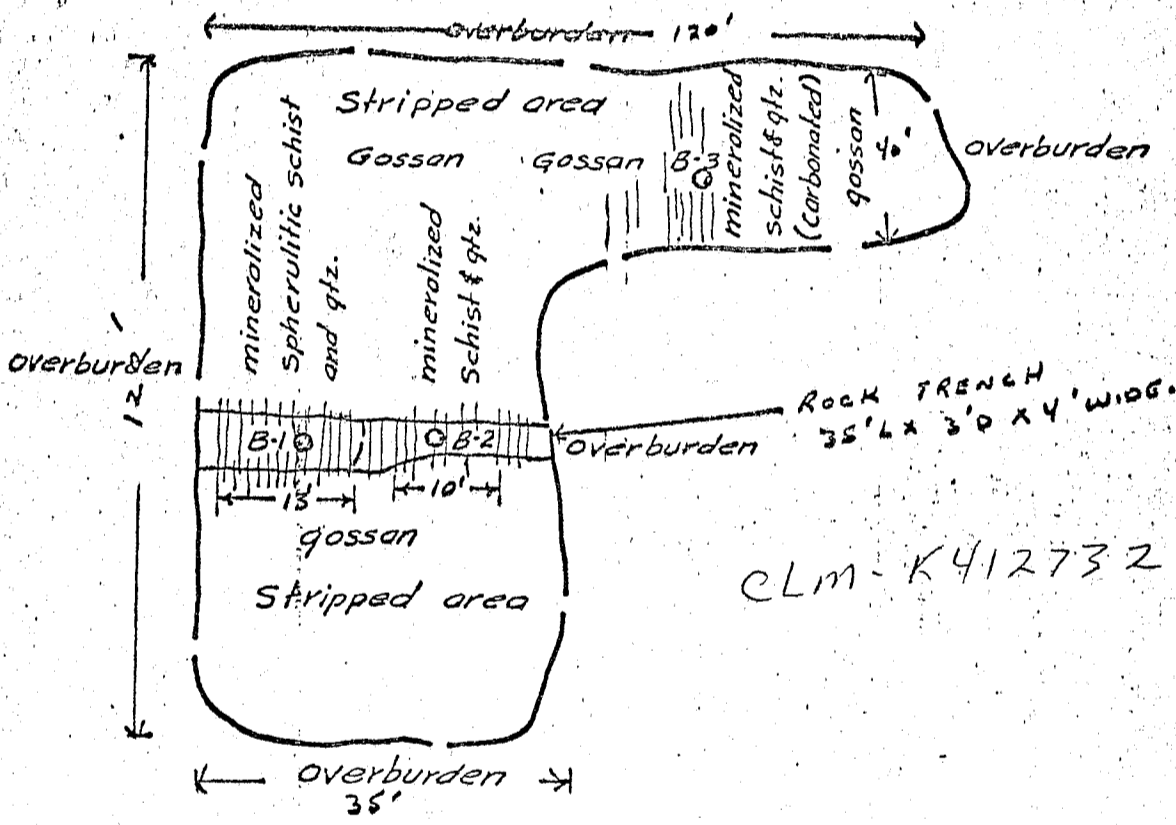 overburden 120'
Stripped area
Gossan
Gossan
B-3
mineralized
schist & qtz.
(carbonated)
gossan
40'
overburden
mineralized
spherulitic schist
and qtz.
mineralized
schist & qtz.
overburden
ROCK TRENCH
35'L x 3'D x 4' WIDE.
B-1
B-2
overburden
13'
10'
gossan
Stripped area
CLM- K412732
overburden
35'